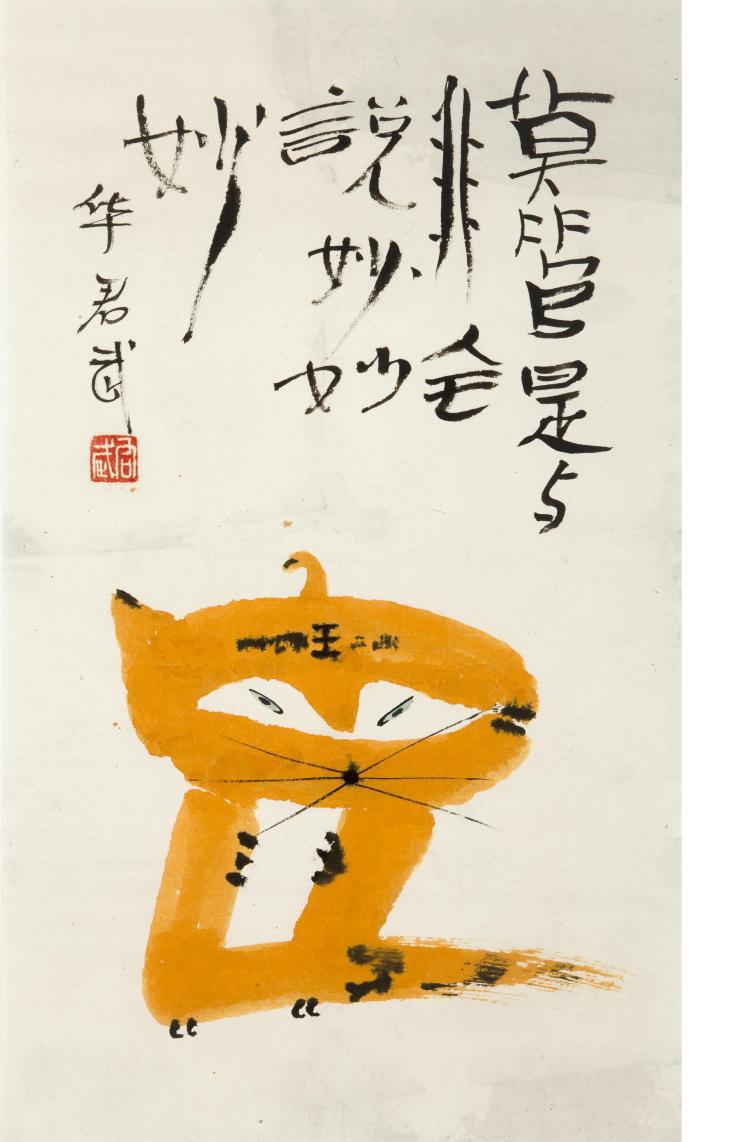 莫管是与
非全
說妙妙
妙
华君武
君武
王